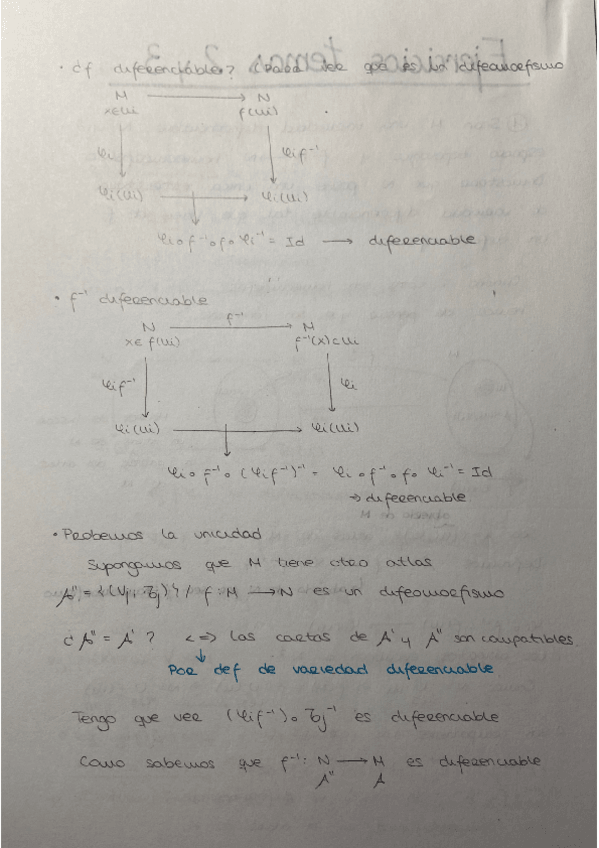 · ¿f diferenciable? (Para ver que es un difeomorfismo
M ⟶ N
x∈Ui f(Ui)
φi φi f⁻¹
φi(Ui) ⟶ φi(Ui)
φi ∘ f⁻¹ ∘ f ∘ φi⁻¹ = Id ⟶ diferenciable
· f⁻¹ diferenciable
N f⁻¹⟶ M
x∈ f(Ui) f⁻¹(x)⊂Ui
φi f⁻¹ φi
φi(Ui) ⟶ φi(Ui)
φi ∘ f⁻¹ ∘ (φi f⁻¹)⁻¹ = φi ∘ f⁻¹ ∘ f ∘ φi⁻¹ = Id
→ diferenciable
· Probemos la unicidad
Supongamos que M tiene otro atlas
A'' = {(Vj, ζj)} / f: M ⟶ N es un difeomorfismo
¿A'' = A' ? <=> Las cartas de A' y A'' son compatibles.
Por def de variedad diferenciable
Tengo que ver (φi f⁻¹) ∘ ζj⁻¹ es diferenciable
Como sabemos que f⁻¹: N ⟶ M es diferenciable
A'' A